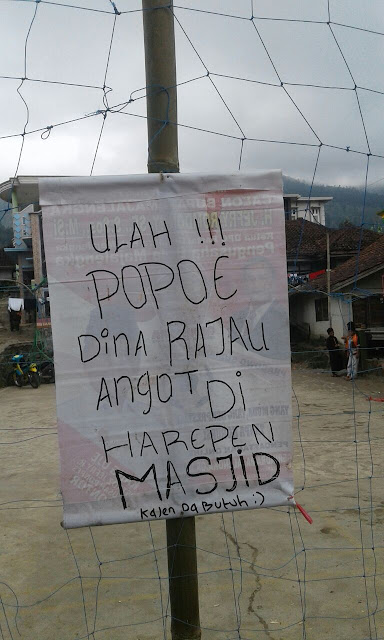 ULAH !!!
POPOE
DiNA RAJAU
ANGOT Di
HAREPEN
MASJiD
Kalen Da Butuh :)